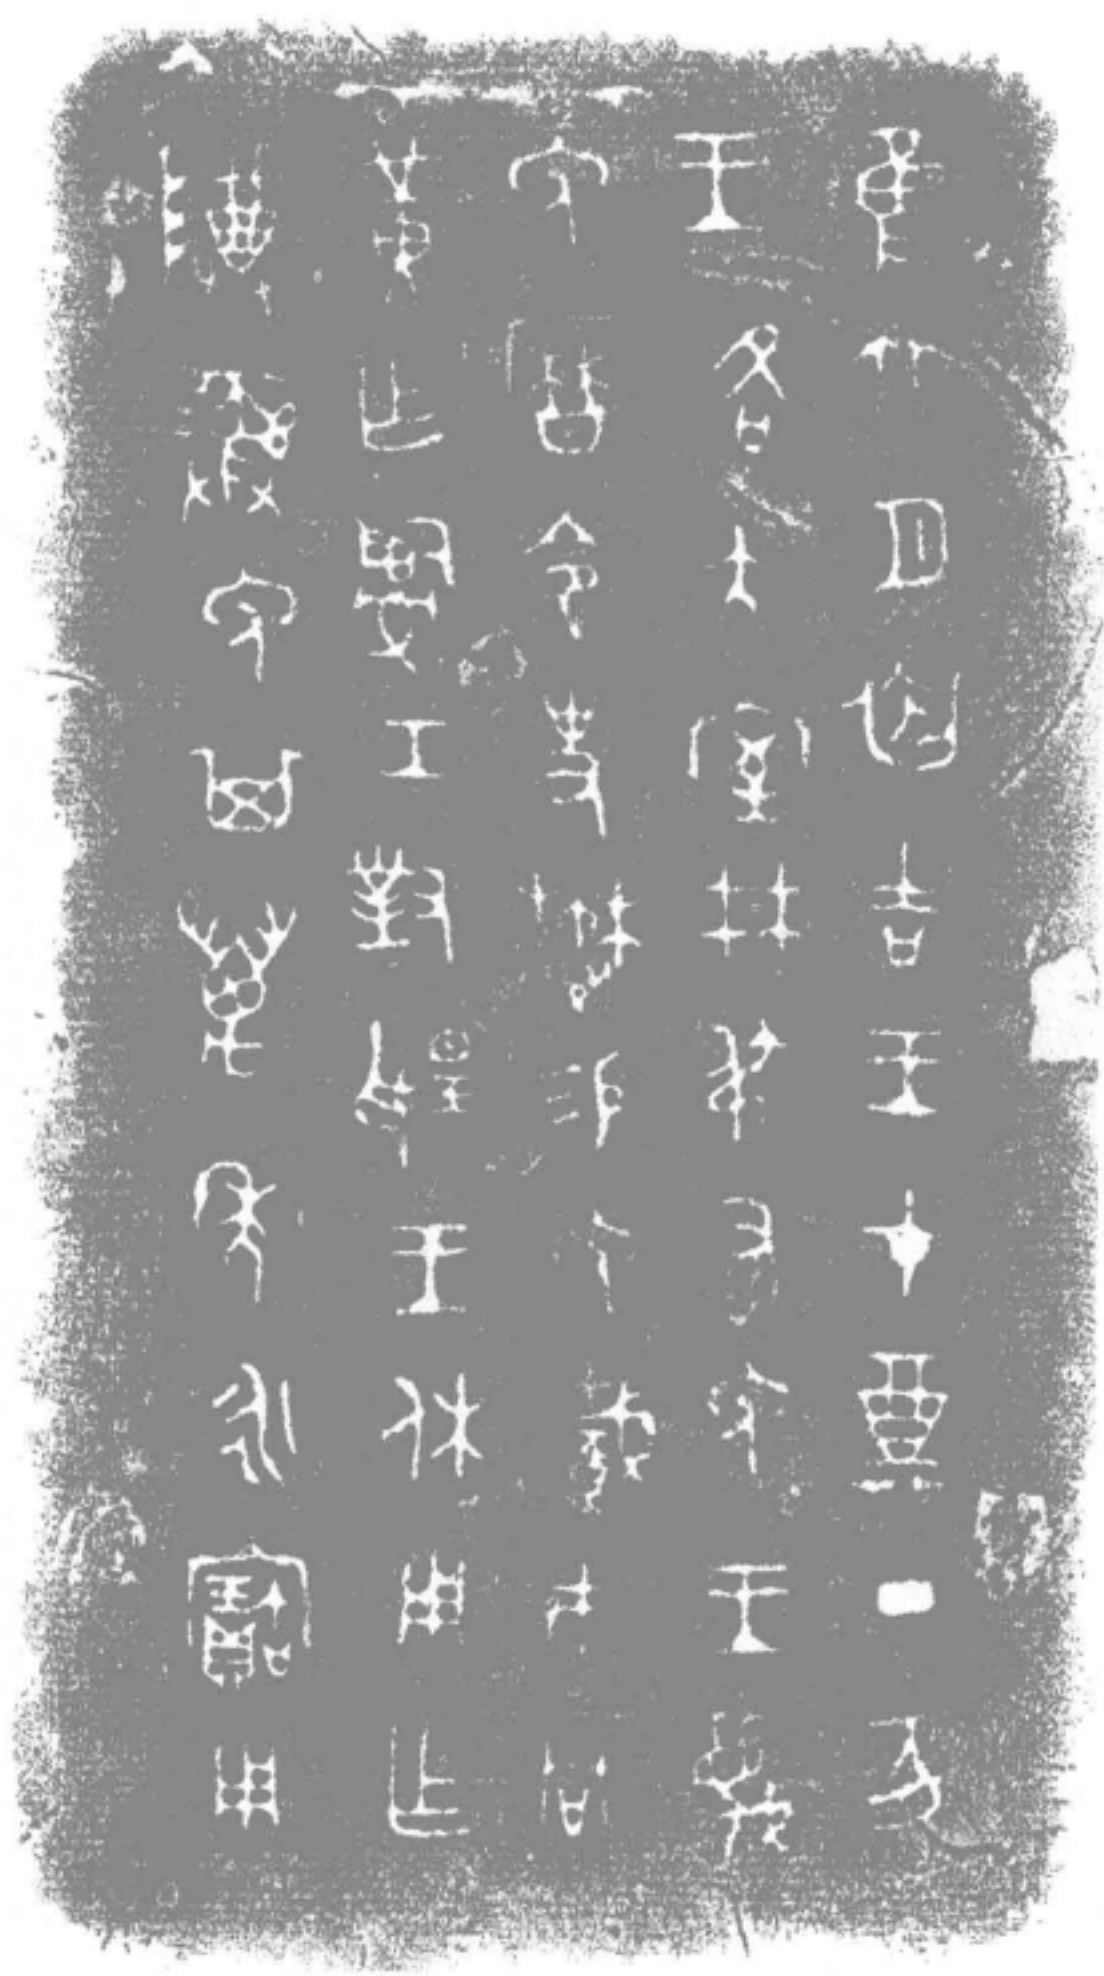 隹六月初吉王才奠丁亥
王各大室井弔右免王蔑
免曆令史懋易免𩎟市冋
黃乍𤔲工對𩁹王休用乍
𨻰彝免其萬年永寶用